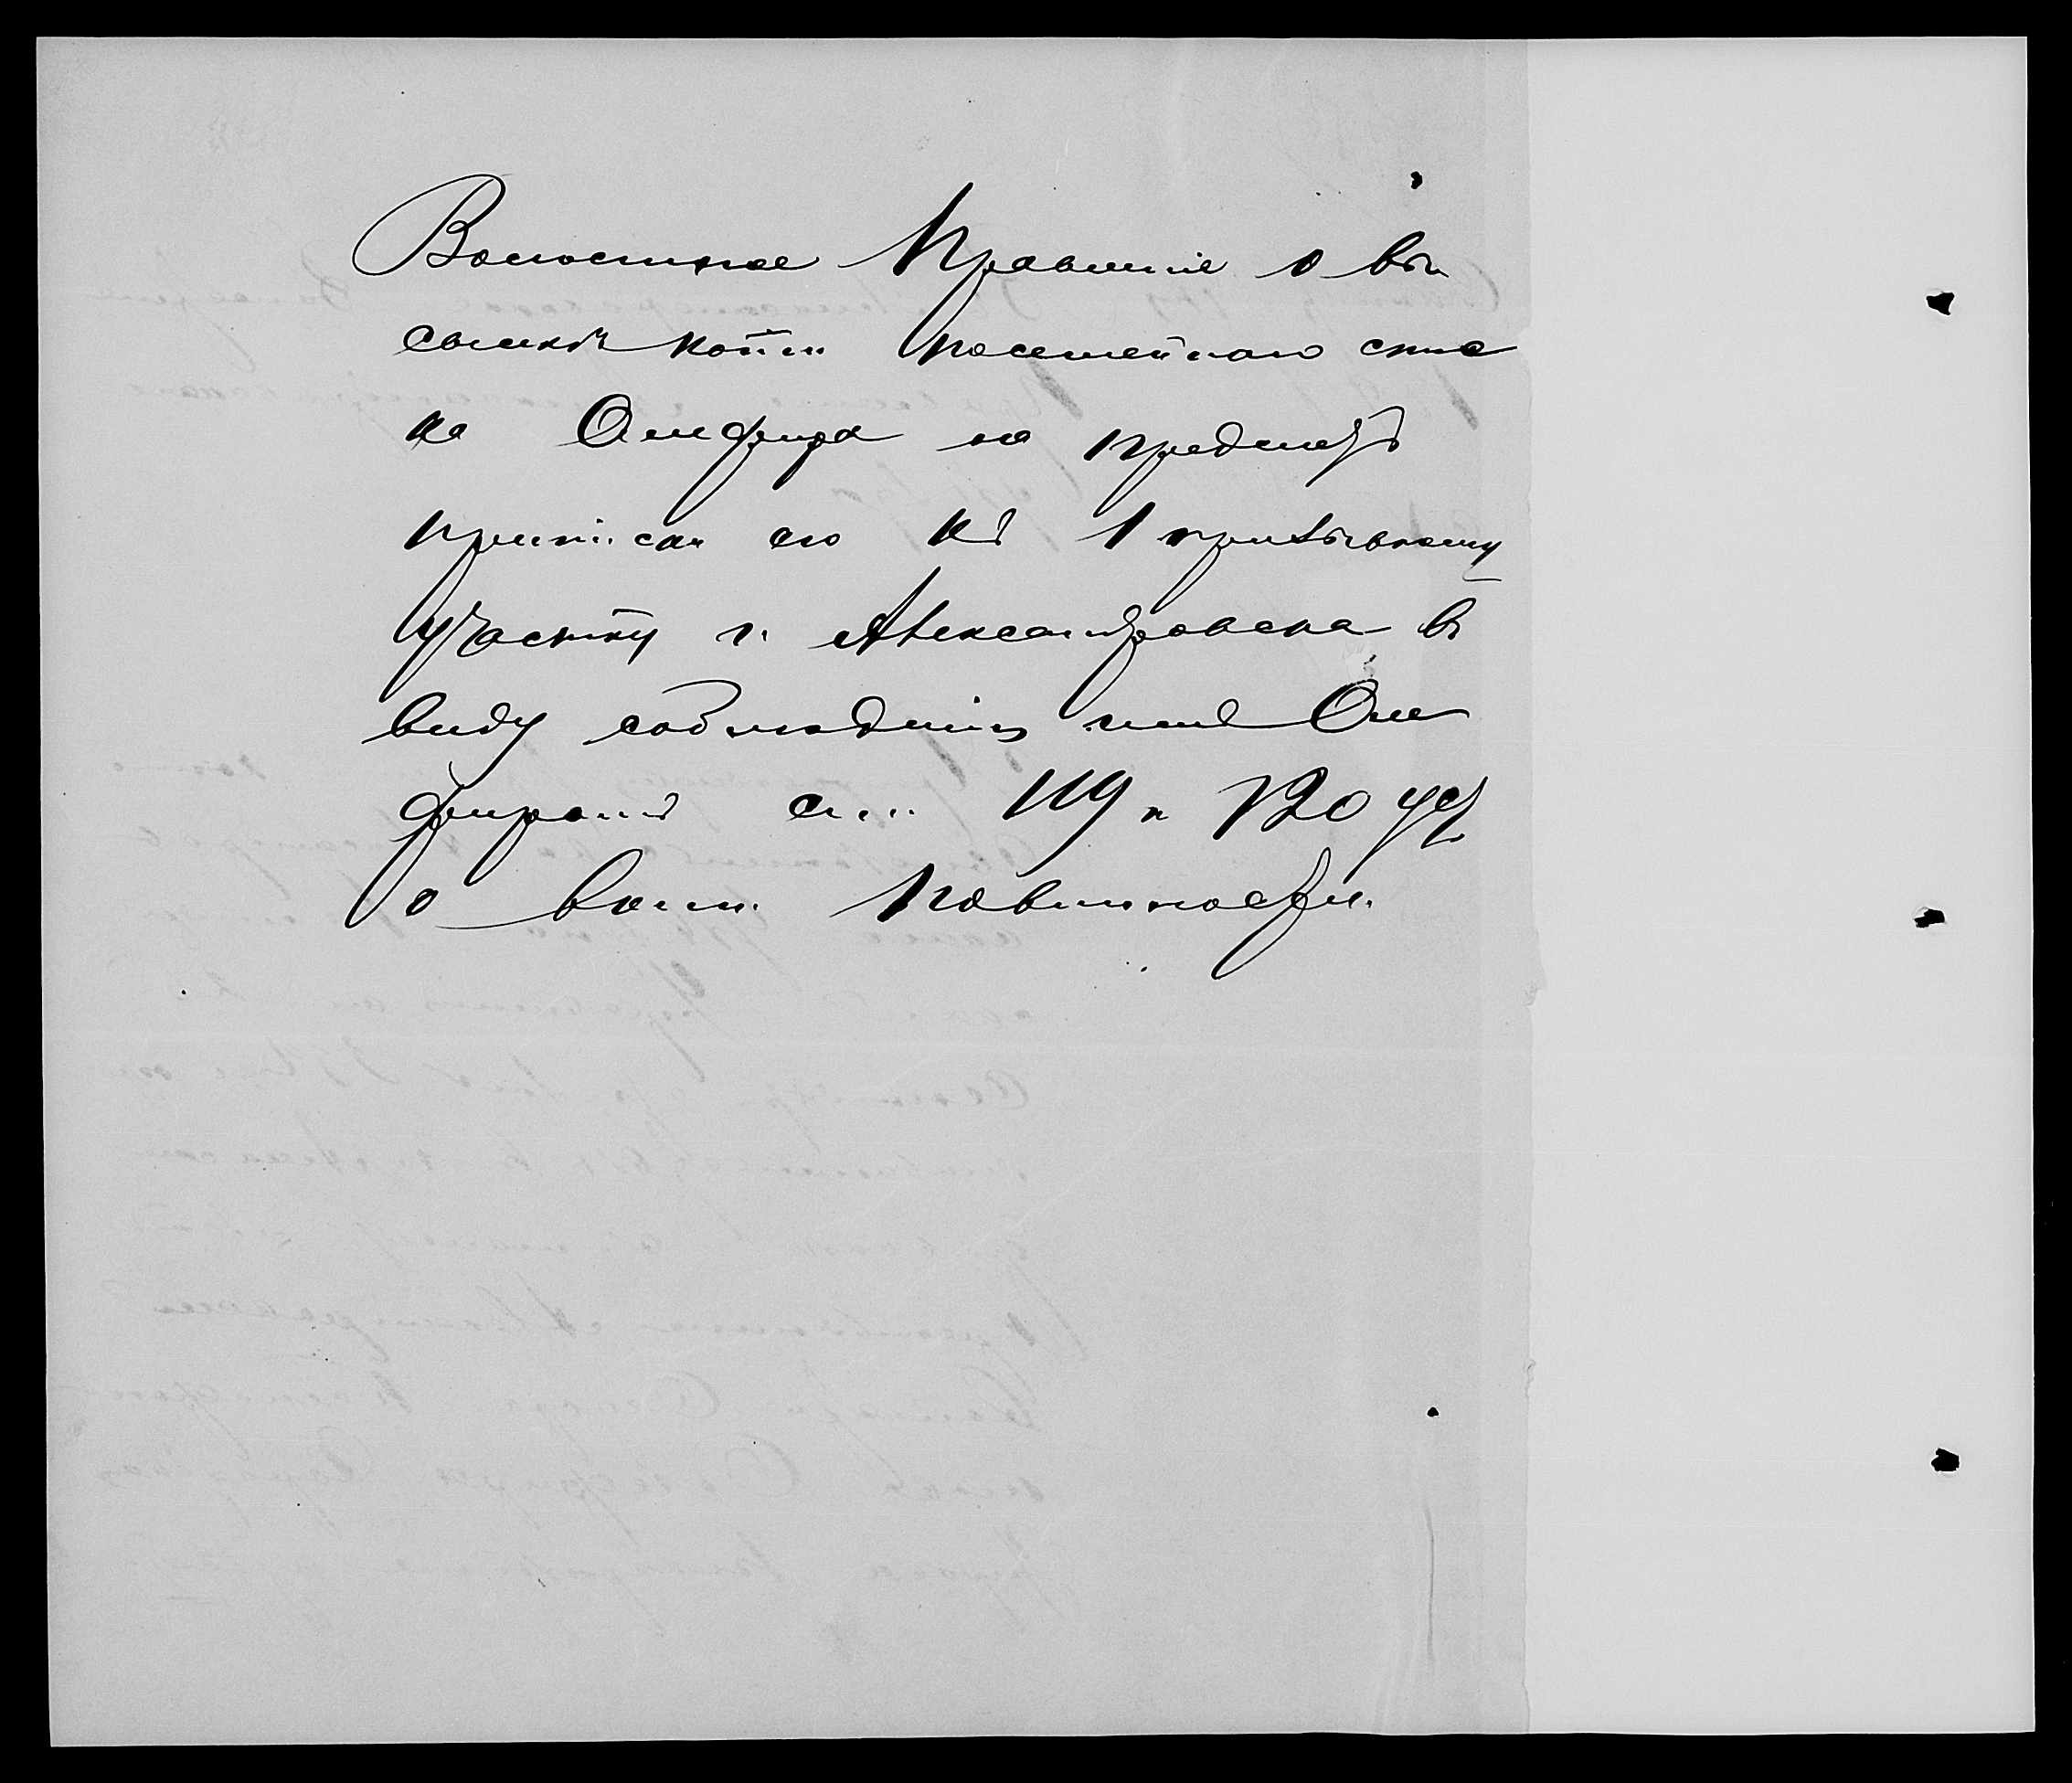 Волостное Правленіе о вы
сылкѣ копіи посемейнаго спис
ка Олифира на предметъ
приписки его къ 1 призывному
участку г. Александровска въ
виду соблюденія имъ Оли
фиромъ ст. 119 и 120 уст
о воин. повинности.